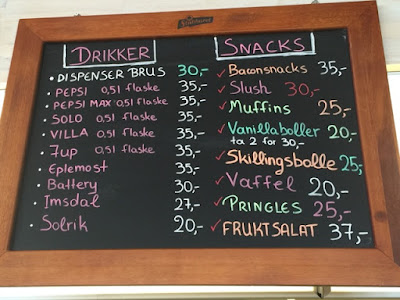 DRIKKER
• DISPENSER BRUS 30,-
• PEPSI 0,5l flaske 35,-
• PEPSI MAX 0,5l flaske 35,-
• SOLO 0,5l flaske 35,-
• VILLA 0,5l flaske 35,-
• 7up 0,5l flaske 35,-
• Eplemost 35,-
• Battery 30,-
• Imsdal 27,-
• Solrik 20,-
SNACKS
✓ Baconsnacks 35,-
✓ Slush 30,-
✓ Muffins 25,-
✓ Vanilleboller 20,-
ta 2 for 30,-
✓ Skillingsbolle 25,-
✓ Vaffel 20,-
✓ PRINGLES 25,-
✓ FRUKTSALAT 37,-